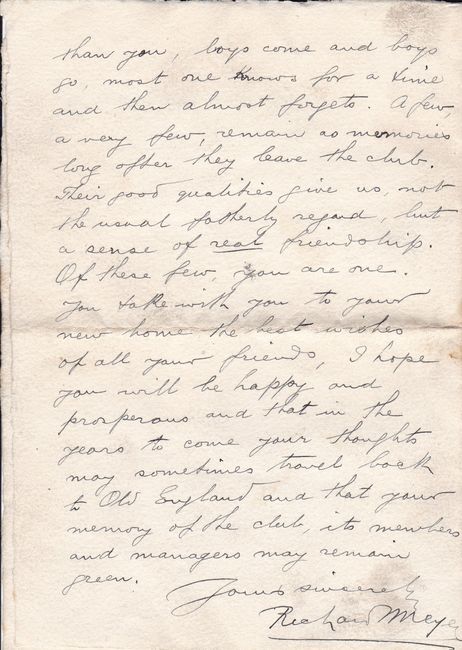 than you, boys come and boys
go, most one knows for a time
and then almost forgets. A few,
a very few, remain as memories
long after they leave the club.
Their good qualities give us, not
the usual fatherly regard, but
a sense of real friendship.
Of these few, you are one.
You take with you to your
new home the best wishes
of all your friends, I hope
you will be happy and
prosperous and that in the
years to come your thoughts
may sometimes travel back
to Old England and that your
memory of the club, its members
and managers may remain
green.
Yours sincerely
Richard Meyer